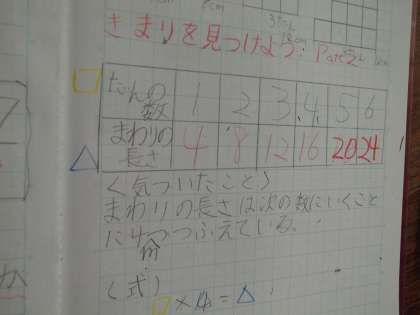 きまりを見つけよう! Part2
だんの数 1 2 3 4 5 6
まわりの長さ 4 8 12 16 20 24
<気づいたこと>
まわりの長さは次の数にいくごと
に4つつふえている。
(式)
□×4=△
か